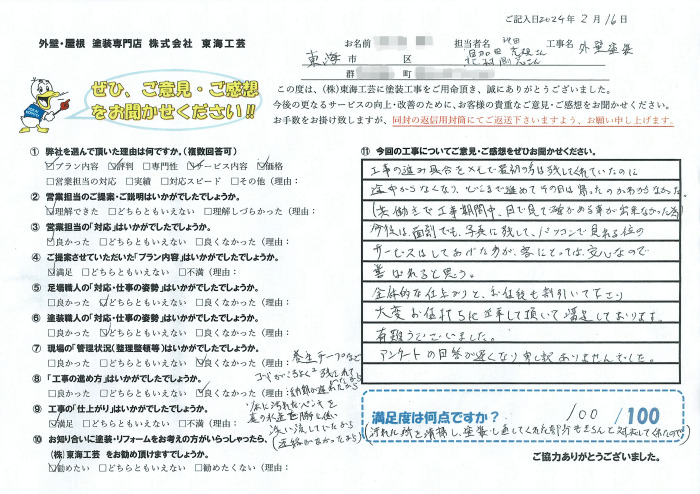 ご記入日2024年2月16日
外壁・屋根 塗装専門店 株式会社 東海工芸
お名前
担当者名
工事名 外壁塗装
東海市 区
群 町
ぜひ、ご意見・ご感想
をお聞かせください!!
この度は、(株)東海工芸に塗装工事をご用命頂き、誠にありがとうございました。
今後の更なるサービスの向上・改善のために、お客様の貴重なご意見・ご感想をお聞かせください。
お手数をお掛け致しますが、同封の返信用封筒にてご返送下さいますよう、お願い申し上げます。
① 弊社を選んで頂いた理由は何ですか。(複数回答可)
☑プラン内容 ☑評判 □専門性 ☑サービス内容 ☑価格
□営業担当の対応 □実績 □対応スピード □その他(理由:
② 営業担当のご提案・ご説明はいかがでしたでしょうか。
☑理解できた □どちらともいえない □理解しづらかった(理由:
③ 営業担当の「対応」はいかがでしたでしょうか。
☑良かった □どちらともいえない □良くなかった(理由:
④ ご提案させていただいた「プラン内容」はいかがでしたでしょうか。
☑満足 □どちらともいえない □不満(理由:
⑤ 足場職人の「対応・仕事の姿勢」はいかがでしたでしょうか。
□良かった ☑どちらともいえない □良くなかった(理由:
⑥ 塗装職人の「対応・仕事の姿勢」はいかがでしたでしょうか。
□良かった ☑どちらともいえない □良くなかった(理由:
⑦ 現場の「管理状況(整理整頓等)」はいかがでしたでしょうか。
□良かった □どちらともいえない ☑良くなかった(理由:養生テープなど
ゴミがころころと残されていたから
⑧ 「工事の進め方」はいかがでしたでしょうか。
□良かった □どちらともいえない ☑良くなかった(理由:
⑨ 工事の「仕上がり」はいかがでしたでしょうか。
☑良かった □どちらともいえない □良くなかった(理由:
洗い流していたから
(連絡がなかったから)
⑩ お知り合いに塗装・リフォームをお考えの方がいらっしゃったら、
(株)東海工芸 をお勧め頂けますでしょうか。
☑勧めたい □どちらともいえない □勧めたくない(理由:
⑪ 今回の工事についてご意見・ご感想をぜひお聞かせください。
工事の進み具合をメモで最初の方は残してくれていたのに
途中からなくなり、どこまで進めてその日は帰ったのかわからなかった。
(共働きで工事期間中、目で見て確かめる事が出来なかった為)
今後は、面倒でも、写真に残して、パソコンで見れる位の
サービスはしてあげた方が、客にとっては、安心なので
喜ばれると思う。
全体的な仕上がりと、お値段も割引いて下さり
大変お値打ちに工事して頂いて満足しております。
有難うございました。
アンケートの回答が遅くなり申し訳ありませんでした。
満足度は何点ですか? 100 /100
(汚れた所を清掃し、塗装し直してくれた部分もきちんと対応してくれたので)
ご協力ありがとうございました。